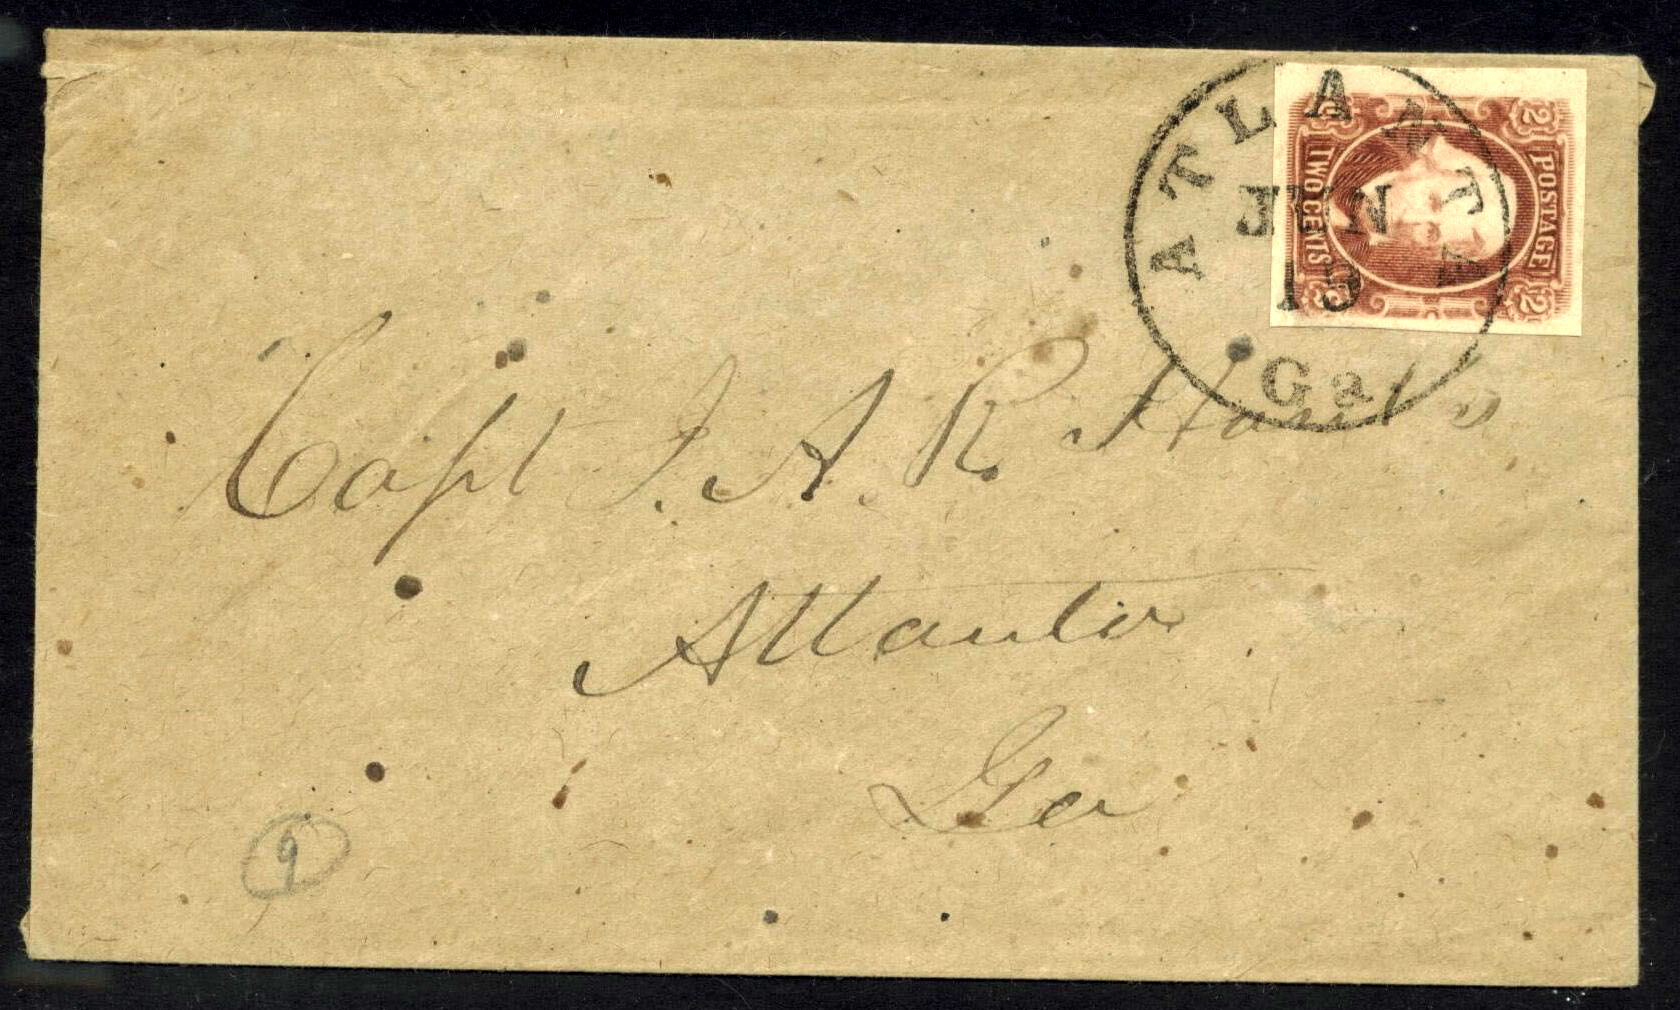 ATLANTA
JUN
19
Ga.
2 POSTAGE 2
2 TWO CENTS 2
Capt J. A. R
Atlanta
Ga
9